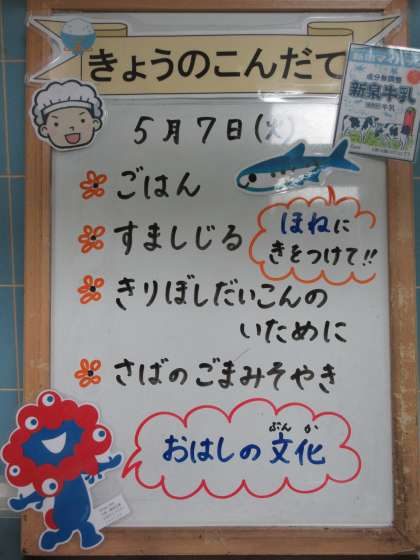 きょうのこんだて
成分無調整
新泉牛乳
5月7日(火)
ごはん
すましじる
ほねに
きをつけて!!
きりぼしだいこんの
いために
さばのごまみそやき
おはしの文化
ぶんか